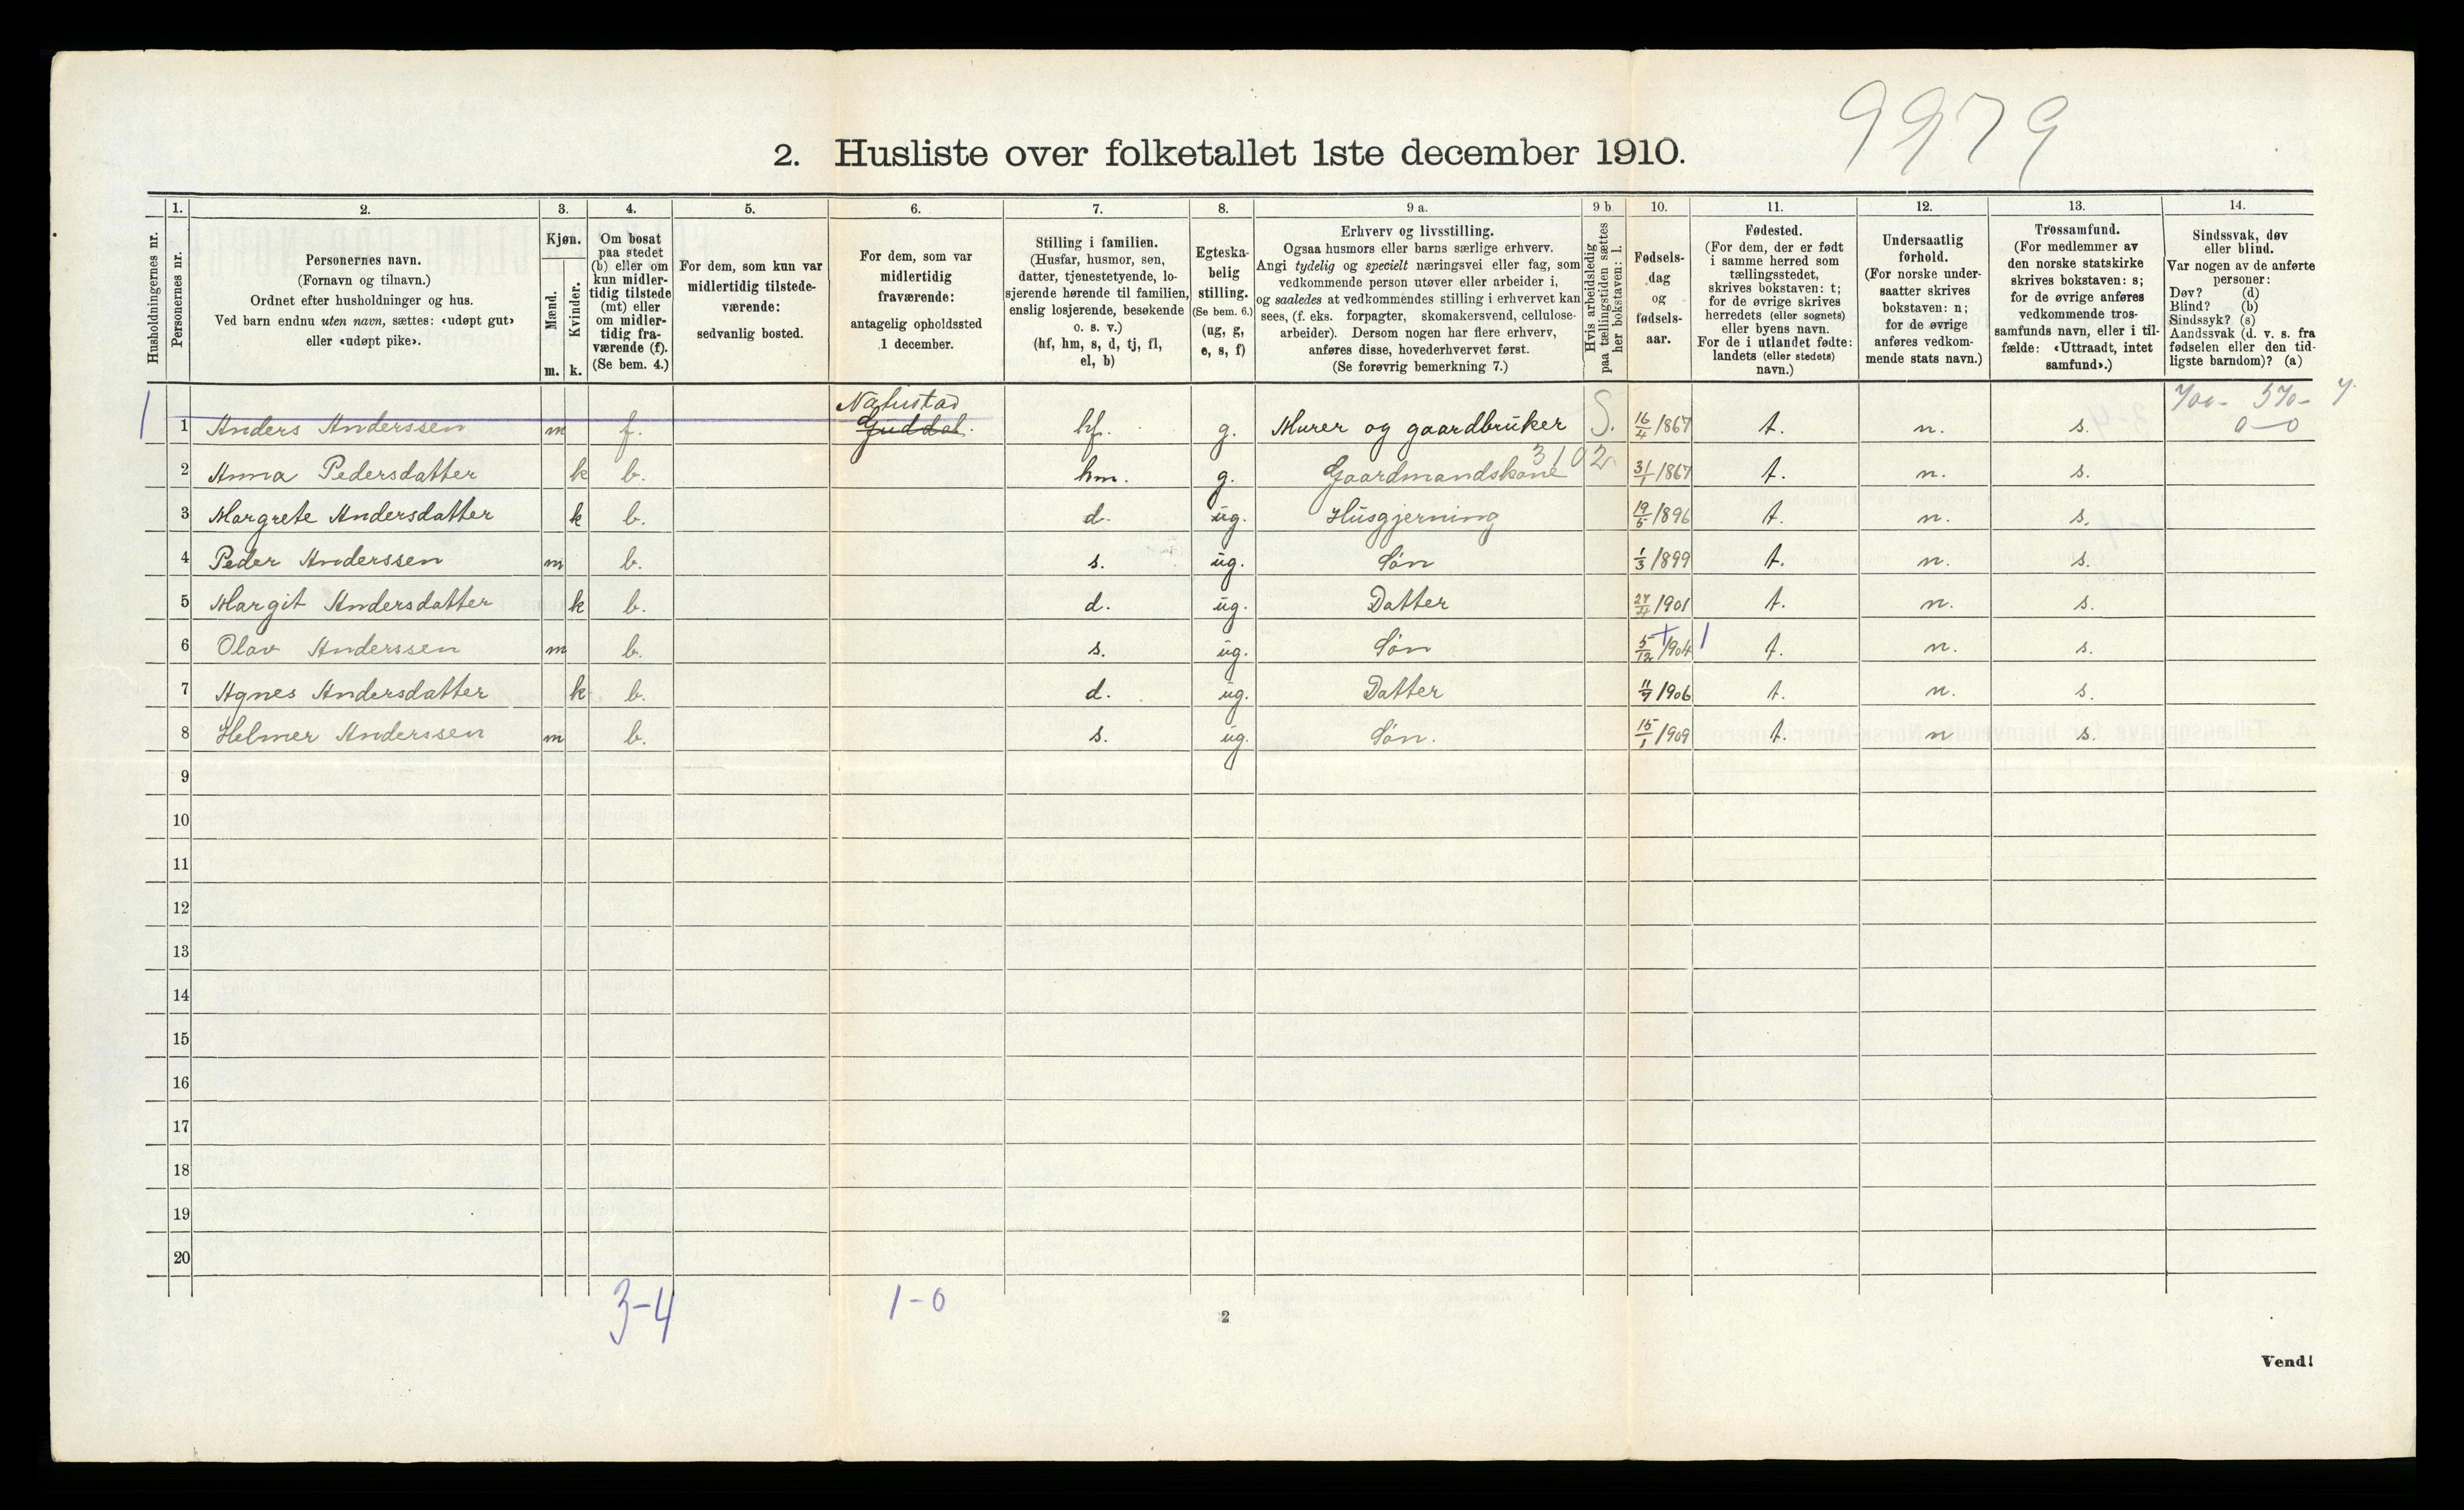 9979
2. Husliste over folketallet 1ste december 1910.
Husholdningernes nr.
1. Personernes nr.
2. Personernes navn.
(Fornavn og tilnavn.)
Ordnet efter husholdninger og hus.
Ved barn endnu uten navn, sættes: «udøpt gut»
eller «udøpt pike».
3. Kjøn.
Mænd. m.
Kvinder. k.
4. Om bosat
paa stedet
(b) eller om
kun midler-
tidig tilstede
(mt) eller
om midler-
tidig fra-
værende (f).
(Se bem. 4.)
5. For dem, som kun var
midlertidig tilstede-
værende:
sedvanlig bosted.
6. For dem, som var
midlertidig
fraværende:
antagelig opholdssted
1 december.
7. Stilling i familien.
(Husfar, husmor, søn,
datter, tjenestetyende, lo-
sjerende hørende til familien,
enslig losjerende, besøkende
o. s. v.)
(hf, hm, s, d, tj, fl,
el, b)
8. Egteska-
belig
stilling.
(Se bem. 6.)
(ug, g,
e, s, f)
9 a. Erhverv og livsstilling.
Ogsaa husmors eller barns særlige erhverv.
Angi tydelig og specielt næringsvei eller fag, som
vedkommende person utøver eller arbeider i,
og saaledes at vedkommendes stilling i erhvervet kan
sees, (f. eks. forpagter, skomakersvend, cellulose-
arbeider). Dersom nogen har flere erhverv,
anføres disse, hovederhvervet først.
(Se forøvrig bemerkning 7.)
9 b
Hvis arbeidsledig
paa tællingstiden sættes
her bokstaven: l.
10. Fødsels-
dag
og
fødsels-
aar.
11. Fødested.
(For dem, der er født
i samme herred som
tællingsstedet,
skrives bokstaven: t;
for de øvrige skrives
herredets (eller sognets)
eller byens navn.
For de i utlandet fødte:
landets (eller stedets)
navn.)
12. Undersaatlig
forhold.
(For norske under-
saatter skrives
bokstaven: n;
for de øvrige
anføres vedkom-
mende stats navn.)
13. Trossamfund.
(For medlemmer av
den norske statskirke
skrives bokstaven: s;
for de øvrige anføres
vedkommende tros-
samfunds navn, eller i til-
fælde: «Uttraadt, intet
samfund».)
14. Sindssvak, døv
eller blind.
Var nogen av de anførte
personer:
Døv? (d)
Blind? (b)
Sindssyk? (s)
Aandssvak (d. v. s. fra
fødselen eller den tid-
ligste barndom)? (a)
1 1 Anders Anderssen m f. Guddal. hf. g. Murer og gaardbruker S. 16/4 1867 t. n. s. 0-0
2 Anna Pedersdatter k b. hm. g. Gaardmandskone 3102 31/1 1867 t. n. s.
3 Margrete Andersdatter k b. d. ug. Husgjerning 19/5 1896 t. n. s.
4 Peder Anderssen m b. s. ug. Søn 1/3 1899 t. n. s.
5 Margit Andersdatter k b. d. ug. Datter 27/4 1901 t. n. s.
6 Olav Anderssen m b. s. ug. Søn 5/12 1904 t. n. s.
7 Agnes Andersdatter k b. d. ug. Datter 11/9 1906 t. n. s.
8 Helmer Anderssen m b. s. ug. Søn. 15/1 1909 t. n s.
9
10
11
12
13
14
15
16
17
18
19
20
3-4 1-0
2
Vend!